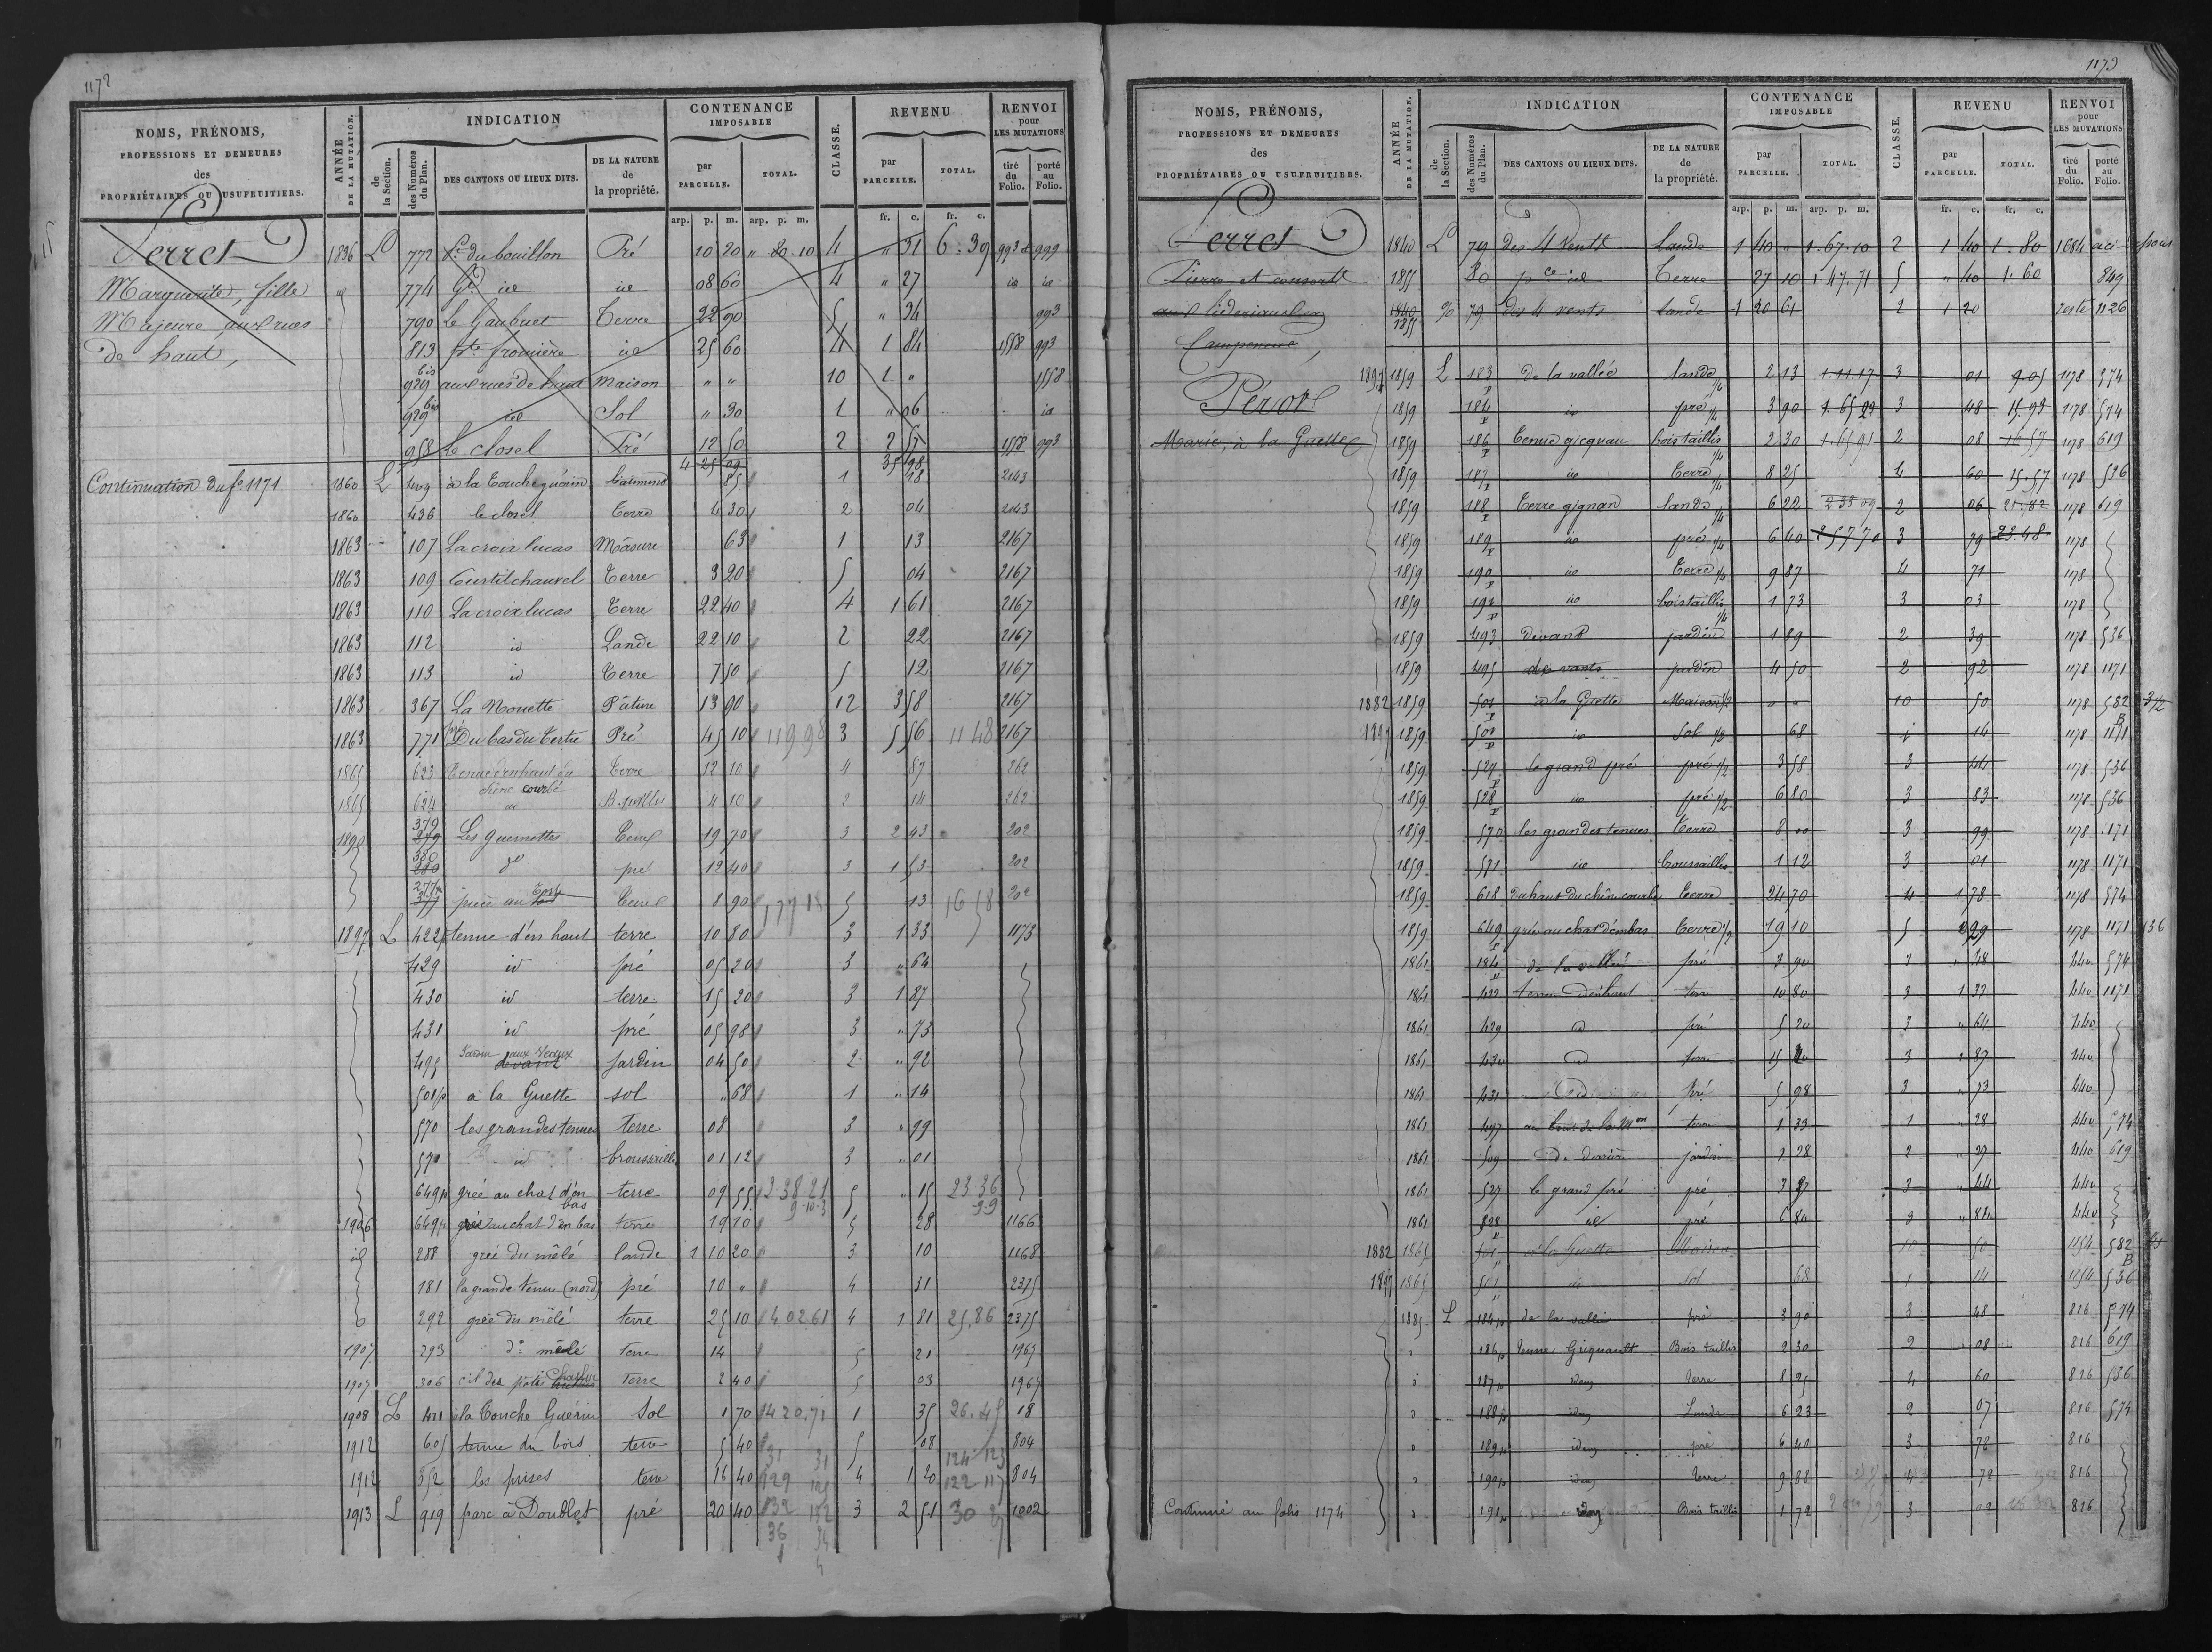 1172
NOMS, PRÉNOMS,
PROFESSIONS ET DEMEURES
des
PROPRIÉTAIRES OU USUFRUITIERS.
ANNÉE
DE LA MUTATION.
INDICATION
de
la Section.
des Numéros
du Plan.
DES CANTONS OU LIEUX DITS.
DE LA NATURE
de
la propriété.
CONTENANCE
IMPOSABLE
par
PARCELLE.
TOTAL.
CLASSE.
REVENU
par
PARCELLE.
TOTAL.
RENVOI
pour
LES MUTATIONS
tiré
du
Folio.
porté
au
Folio.
arp. p. m. arp. p. m. fr. c. fr. c.
Perret
Marguerite, fille
Majeure aux rues
de haut,
1836 L 772 du bouillon Pré 10 20 " 80 10 4 " 31 6 39 993 999
774 id id 08 60 4 " 27 id id
790 Le Gaubuet Terre 22 90 5 " 34 993
813 id 25 60 4 1 84 1558 993
929 bis aux rues de haut Maison " " 10 1 " 1558
929 bis id Sol " 30 1 " 06 id
958 Le closel Pré 12 50 2 2 57 1558 993
4 25 09 35 98
Continuation du fo 1171
1860 L 409 à la Touche guérin batiment 85 1 48 2143
1860 436 le closel Terre 4 30 2 04 2143
1863 107 La croix lucas Mâsure 63 1 13 2167
1863 109 Courtil chauvel Terre 3 20 5 04 2167
1863 110 La croix lucas Terre 22 40 4 1 61 2167
1863 112 id Lande 22 10 2 22 2167
1863 113 id Terre 7 50 5 12 2167
1863 367 La Nouette Pâture 13 90 12 3 58 2167
1863 771 pré Du bas du Tertre Pré 45 10 119 98 3 5 56 11 48 2167
1865 623 Tenue d'en haut du chêne courbé Terre 12 10 4 87 262
1865 624 id B. taillis 4 10 2 14 262
1890 379 279 Les guernottes Terre 19 70 3 2 43 202
380 280 do pré 12 40 3 1 53 202
377 pièce au Terre 8 90 177 18 5 13 16 58 202
1897 L 422 tenue d'en haut terre 10 80 3 1 33 1173
429 id pré 05 20 3 " 64
430 id terre 15 20 3 1 87
431 id pré 05 98 3 " 73
495 devant jardin 04 50 2 " 92
501p à la Guette sol " 68 1 " 14
570 les grandes tenues terre 08 3 " 99
571 id broussailles 01 12 3 " 01
649p grée au chat d'en bas terre 09 55 2 38 21 5 " 15 23 36
1906 649p grée au chat d'en bas terre 19 10 5 28 1166
id 288 grée du mêlé lande 1 10 20 3 10 1168
181 la grande tenue (nord) pré 10 " 4 31 2375
292 grée du mêlé terre 25 10 4.02.61 4 1 81 25.86 2375
1907 293 do mêlé terre 14 5 21 1967
1907 306 terre 2 40 5 03 1967
1908 L 411 à la Touche Guérin Sol 1 70 4 20.71 1 35 26.45 18
1912 605 tenue du bois terre 5 40 5 08 804
1912 352 les prises terre 16 40 4 1 20 804
1913 L 919 parc à Doublet pré 20 40 3 2 51 1002
1173
NOMS, PRÉNOMS,
PROFESSIONS ET DEMEURES
des
PROPRIÉTAIRES OU USUFRUITIERS.
ANNÉE
DE LA MUTATION.
INDICATION
de
la Section.
des Numéros
du Plan.
DES CANTONS OU LIEUX DITS.
DE LA NATURE
de
la propriété.
CONTENANCE
IMPOSABLE
par
PARCELLE.
TOTAL.
CLASSE.
REVENU
par
PARCELLE.
TOTAL.
RENVOI
pour
LES MUTATIONS
tiré
du
Folio.
porté
au
Folio.
arp. p. m. arp. p. m. fr. c. fr. c.
Perret
Pierre et consorts
Campeneac,
1840 L 79 des 4 vents Lande 1 40 " 1.67.10 2 1 40 1.80 1684
1855 80 pce id Terre 27 10 1.47.71 5 " 40 1.60 849
1840 1855 79 des 4 vents Lande 1 20 61 2 1 20 resté 1126
Pérot
Marie, à la Guette
1859 L 183 p De la vallée lande 1/4 2 13 1.11.17 3 01 9.05 1178 574
1859 184 p id pré 1/4 3 90 1.65 23 3 48 15.93 1178 574
1859 186 p Tenue gicquau bois taillis 1/4 2 30 1.65 91 2 08 16 57 1178 619
1859 187 p id Terre 1/4 8 25 4 60 15.57 1178 536
1859 188 p Terre gignan lande 1/4 6 22 2 33 09 2 06 21.82 1178 619
1859 189 p id pré 1/4 6 40 2 57 70 3 79 23.48 1178
1859 190 p id Terre 1/4 9 87 4 71 1178
1859 191 p id bois taillis 1/4 1 73 3 03 1178
1859 493 Devant jardin 1 89 2 39 1178 536
1859 495 jardin 4 50 2 92 1178 1171
1882 1859 501 p à la Guette Maison 1/2 " " 10 50 1178 582
1897 1859 501 p id Sol 1/2 68 1 14 1178 1171
1859 527 p le grand pré pré 1/2 3 58 3 44 1178 536
1859 528 p id pré 1/2 6 80 3 83 1178 536
1859 570 les grandes tenues terre 8 00 3 99 1178 1171
1859 571 id broussailles 1 12 3 01 1178 1171
1859 618 Du haut du chêne courbé terre 24 70 4 1 78 1178 574
1859 649 p grée au chat d'en bas terre 1/2 19 10 5 29 1178 1171 536
1861 184 p de la vallée pré 3 90 3 " 48 440 574
1861 422 tenue d'en haut terre 10 80 3 1 33 440 1171
1861 429 id pré 5 20 3 " 64 440
1861 430 id terre 15 20 3 1 87 440
1861 431 id pré 5 98 3 " 73 440
1861 497 au bout de la Mon terre 1 33 1 " 28 440 574
1861 509 De derrière jardin 1 28 2 " 27 440 619
1861 527 le grand pré pré 3 57 3 " 44 440
1861 528 p id pré 6 80 3 " 84 440
1882 1865 501 p à la Guette Maison 10 50 1154 582
1897 1865 501 p id sol 68 1 14 1154 536
1885 L 184 p de la vallée pré 3 90 3 48 816 574
186 p tenue Gicquault Bois taillis 2 30 2 08 816 619
187 p idem terre 8 25 4 60 816 536
188 p idem Lande 6 23 2 07 816 574
189 p idem pré 6 40 3 78 816
190 p idem terre 9 88 4 72 816
Continué au folio 1174
191 p idem Bois taillis 1 72 3 02 816